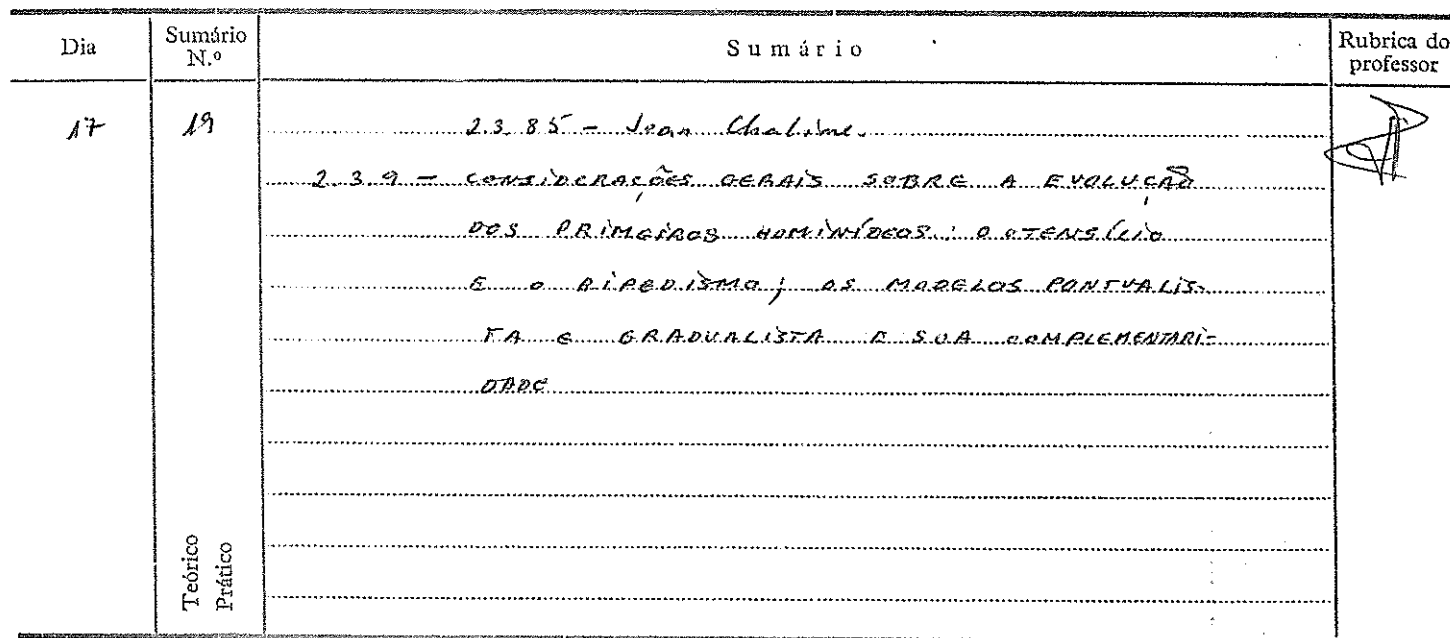 Dia
Sumário N.º
Sumário
Rubrica do professor
17
19
2.3.8.5 - Jean Chaline.
2.3.9 - CONSIDERAÇÕES GERAIS SOBRE A EVOLUÇÃO
DOS PRIMEIROS HOMINÍDEOS: O UTENSÍLIO
E O BIPEDISMO; OS MODELOS PONTUALIS-
TA E GRADUALISTA E SUA COMPLEMENTARI-
DADE
Teórico
Prático